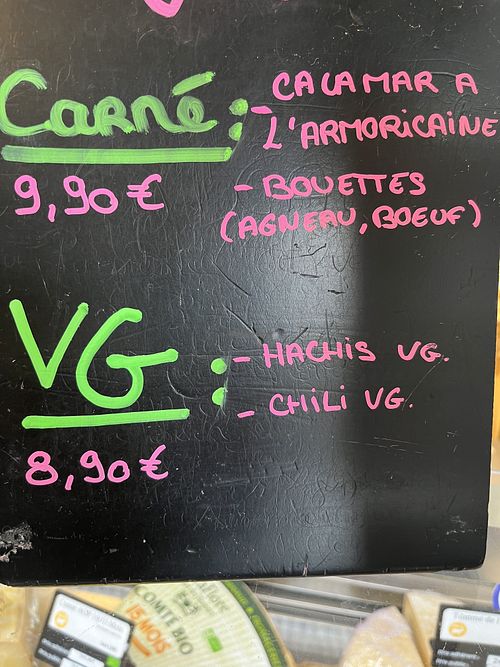 Carné :
9,90 €
- CALAMAR A
L'ARMORICAINE
- BOUETTES
(AGNEAU, BOEUF)
VG :
8,90 €
- HACHIS VG.
- CHILI VG.
COMTÉ BIO
15 MOIS